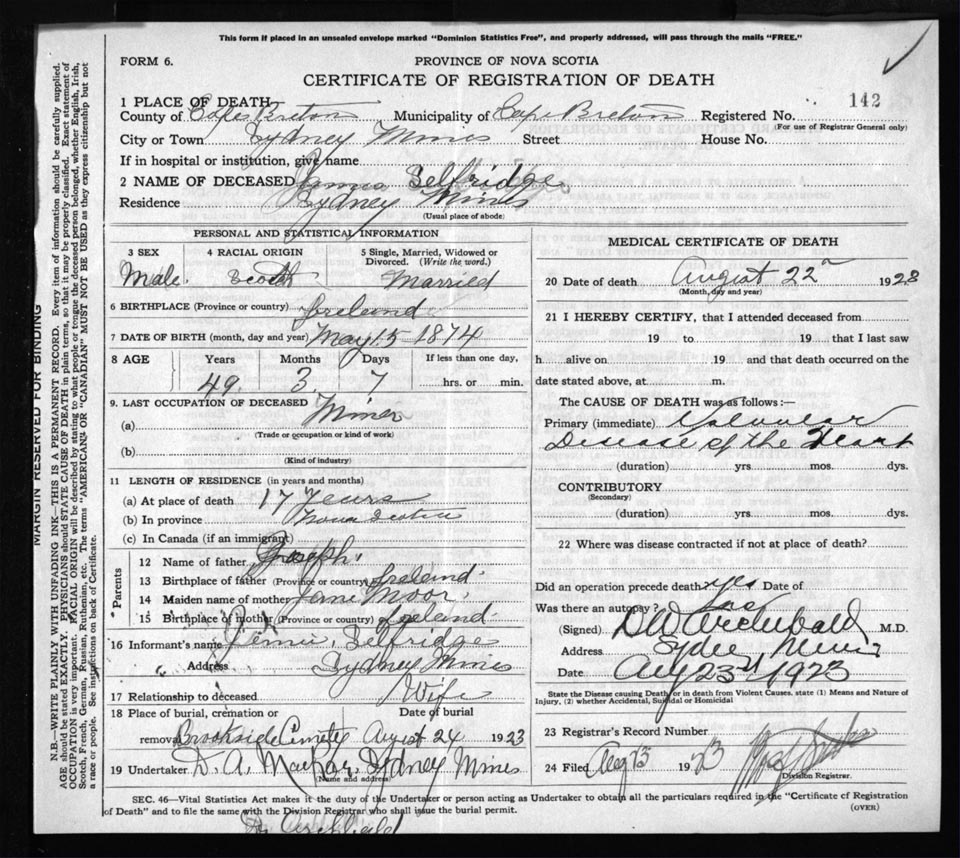 This form if placed in an unsealed envelope marked "Dominion Statistics Free", and properly addressed, will pass through the mails "FREE."
FORM 6.
PROVINCE OF NOVA SCOTIA
CERTIFICATE OF REGISTRATION OF DEATH
142
1 PLACE OF DEATH
County of Cape Breton Municipality of Cape Breton Registered No.
(For use of Registrar General only)
City or Town Sydney Mines Street House No.
If in hospital or institution, give name
2 NAME OF DECEASED Selfridge
Residence Sydney Mines
(Usual place of abode)
PERSONAL AND STATISTICAL INFORMATION
3 SEX 4 RACIAL ORIGIN 5 Single, Married, Widowed or Divorced. (Write the word.)
Male. Scotch Married
6 BIRTHPLACE (Province or country) Ireland
7 DATE OF BIRTH (month, day and year) May 15 1874
8 AGE Years Months Days If less than one day,
49 3 7 hrs. or min.
9. LAST OCCUPATION OF DECEASED
(a) Miner
(Trade or occupation or kind of work)
(b)
(Kind of industry)
11 LENGTH OF RESIDENCE (in years and months)
(a) At place of death 17 Years
(b) In province Nova Scotia
(c) In Canada (if an immigrant)
Parents
12 Name of father Joseph
13 Birthplace of father (Province or country) Ireland
14 Maiden name of mother Jane Moor
15 Birthplace of mother (Province or country) Ireland
16 Informant's name Selfridge
Address Sydney Mines
17 Relationship to deceased Wife
18 Place of burial, cremation or removal Date of burial
Brookside Cemetery August 24 1923
19 Undertaker D. A. Sydney Mines
(Name and address)
MEDICAL CERTIFICATE OF DEATH
20 Date of death August 22 1923
(Month, day and year)
21 I HEREBY CERTIFY, that I attended deceased from
19 to 19 that I last saw
h alive on 19 and that death occurred on the
date stated above, at m.
The CAUSE OF DEATH was as follows:—
Primary (immediate) Valvular
Disease of the Heart
(duration) yrs. mos. dys.
CONTRIBUTORY
(Secondary)
(duration) yrs. mos. dys.
22 Where was disease contracted if not at place of death?
Did an operation precede death yes Date of
Was there an autopsy?
(Signed) Archibald M.D.
Address Mines
Date Aug 23 1923
State the Disease causing Death, or in death from Violent Causes, state (1) Means and Nature of
Injury, (2) whether Accidental, Suicidal or Homicidal
23 Registrar's Record Number
24 Filed Aug 23 1923
Division Registrar.
SEC. 46—Vital Statistics Act makes it the duty of the Undertaker or person acting as Undertaker to obtain all the particulars required in the "Certificate of Registration
of Death" and to file the same with the Division Registrar who shall issue the burial permit.
(OVER)
Dr Archibald
MARGIN RESERVED FOR BINDING
N.B.—WRITE PLAINLY WITH UNFADING INK—THIS IS A PERMANENT RECORD. Every item of information should be carefully supplied.
AGE should be stated EXACTLY. PHYSICIANS should STATE CAUSE OF DEATH in plain terms, so that it may be properly classified. Exact statement of
OCCUPATION is very important. RACIAL ORIGIN will be described by stating to what people or tongue the deceased person belonged, whether English, Irish,
Scotch, French, German, Russian, Ruthenian, etc. The terms "AMERICAN" or "CANADIAN" MUST NOT BE USED as they express citizenship but not
a race or people. See instructions on back of Certificate.